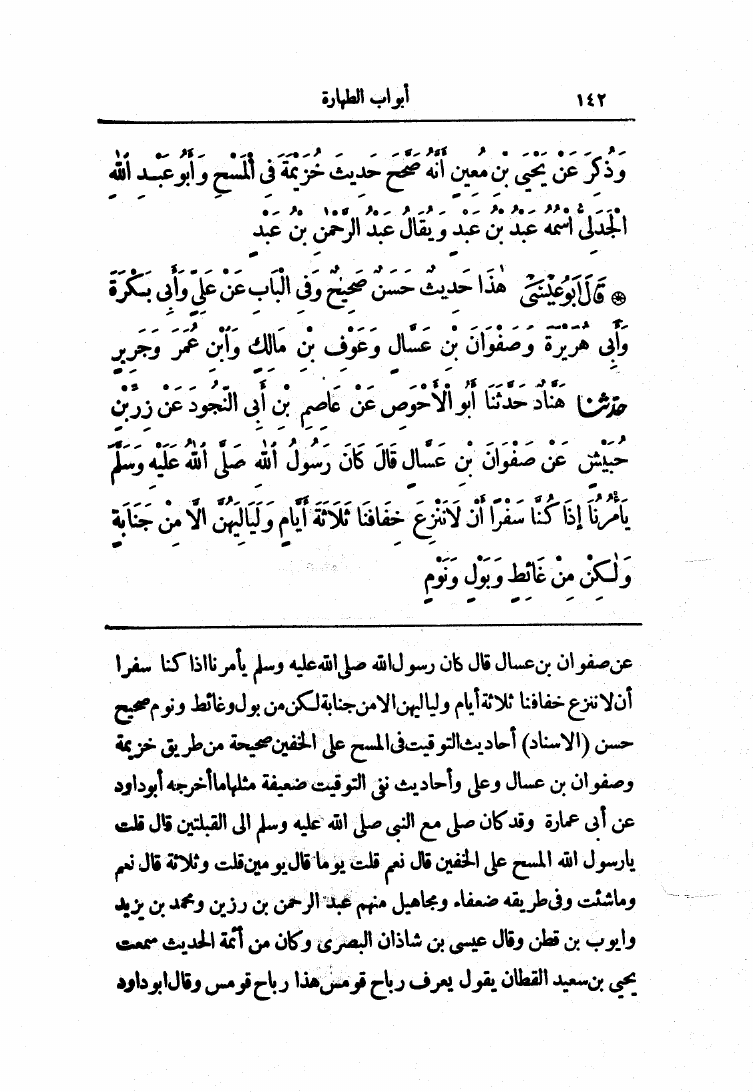 ١٤٢ أبواب الطهارة
وَذُكِرَ عَنْ يَحْيَى بْنِ مُعِينٍ أَنَّهُ صَحَّحَ حَدِيثَ خُزَيْمَةَ فِى الْمَسْحِ وَأَبُو عَبْدِ اللهِ
الْجَدَلِىُّ اسْمُهُ عَبْدُ بْنُ عَبْدٍ وَيُقَالُ عَبْدُ الرَّحْمٰنِ بْنُ عَبْدٍ
❊ قَالَ أَبُو عِيْسَى هٰذَا حَدِيثٌ حَسَنٌ صَحِيحٌ وَفِى الْبَابِ عَنْ عَلِىٍّ وَأَبِى بَكْرَةَ
وَأَبِى هُرَيْرَةَ وَصَفْوَانَ بْنِ عَسَّالٍ وَعَوْفِ بْنِ مَالِكٍ وَابْنِ عُمَرَ وَجَرِيرٍ
حَدَّثَنَا هَنَّادٌ حَدَّثَنَا أَبُو الْأَحْوَصِ عَنْ عَاصِمِ بْنِ أَبِى النَّجُودِ عَنْ زِرِّ بْنِ
حُبَيْشٍ عَنْ صَفْوَانَ بْنِ عَسَّالٍ قَالَ كَانَ رَسُولُ اللهِ صَلَّى اللهُ عَلَيْهِ وَسَلَّمَ
يَأْمُرُنَا إِذَا كُنَّا سَفْرًا أَنْ لَانَنْزِعَ خِفَافَنَا ثَلَاثَةَ أَيَّامٍ وَلَيَالِيَهُنَّ الَّا مِنْ جَنَابَةٍ
وَلٰكِنْ مِنْ غَائِطٍ وَبَوْلٍ وَنَوْمٍ
عن صفوان بن عسال قال كان رسول الله صلى الله عليه وسلم يأمرنا اذا كنا سفرا
أن لا ننزع خفافنا ثلاثة أيام ولياليهن الا من جنابة لكن من بول وغائط ونوم صحيح
حسن (الاسناد) أحاديث التوقيت فى المسح على الخفين صحيحة من طريق خزيمة
وصفوان بن عسال وعلى وأحاديث نفى التوقيت ضعيفة مثلها ما أخرجه أبو داود
عن أبى عمارة وقد كان صلى مع النبى صلى الله عليه وسلم الى القبلتين قال قلت
يا رسول الله المسح على الخفين قال نعم قلت يوما قال يومين قلت وثلاثة قال نعم
وما شئت وفى طريقه ضعفاء ومجاهيل منهم عبد الرحمن بن رزين ومحمد بن يزيد
وايوب بن قطن وقال عيسى بن شاذان البصرى وكان من أئمة الحديث سمعت
يحيى بن سعيد القطان يقول يعرف رباح قومس هذا رباح قومس وقال ابو داود